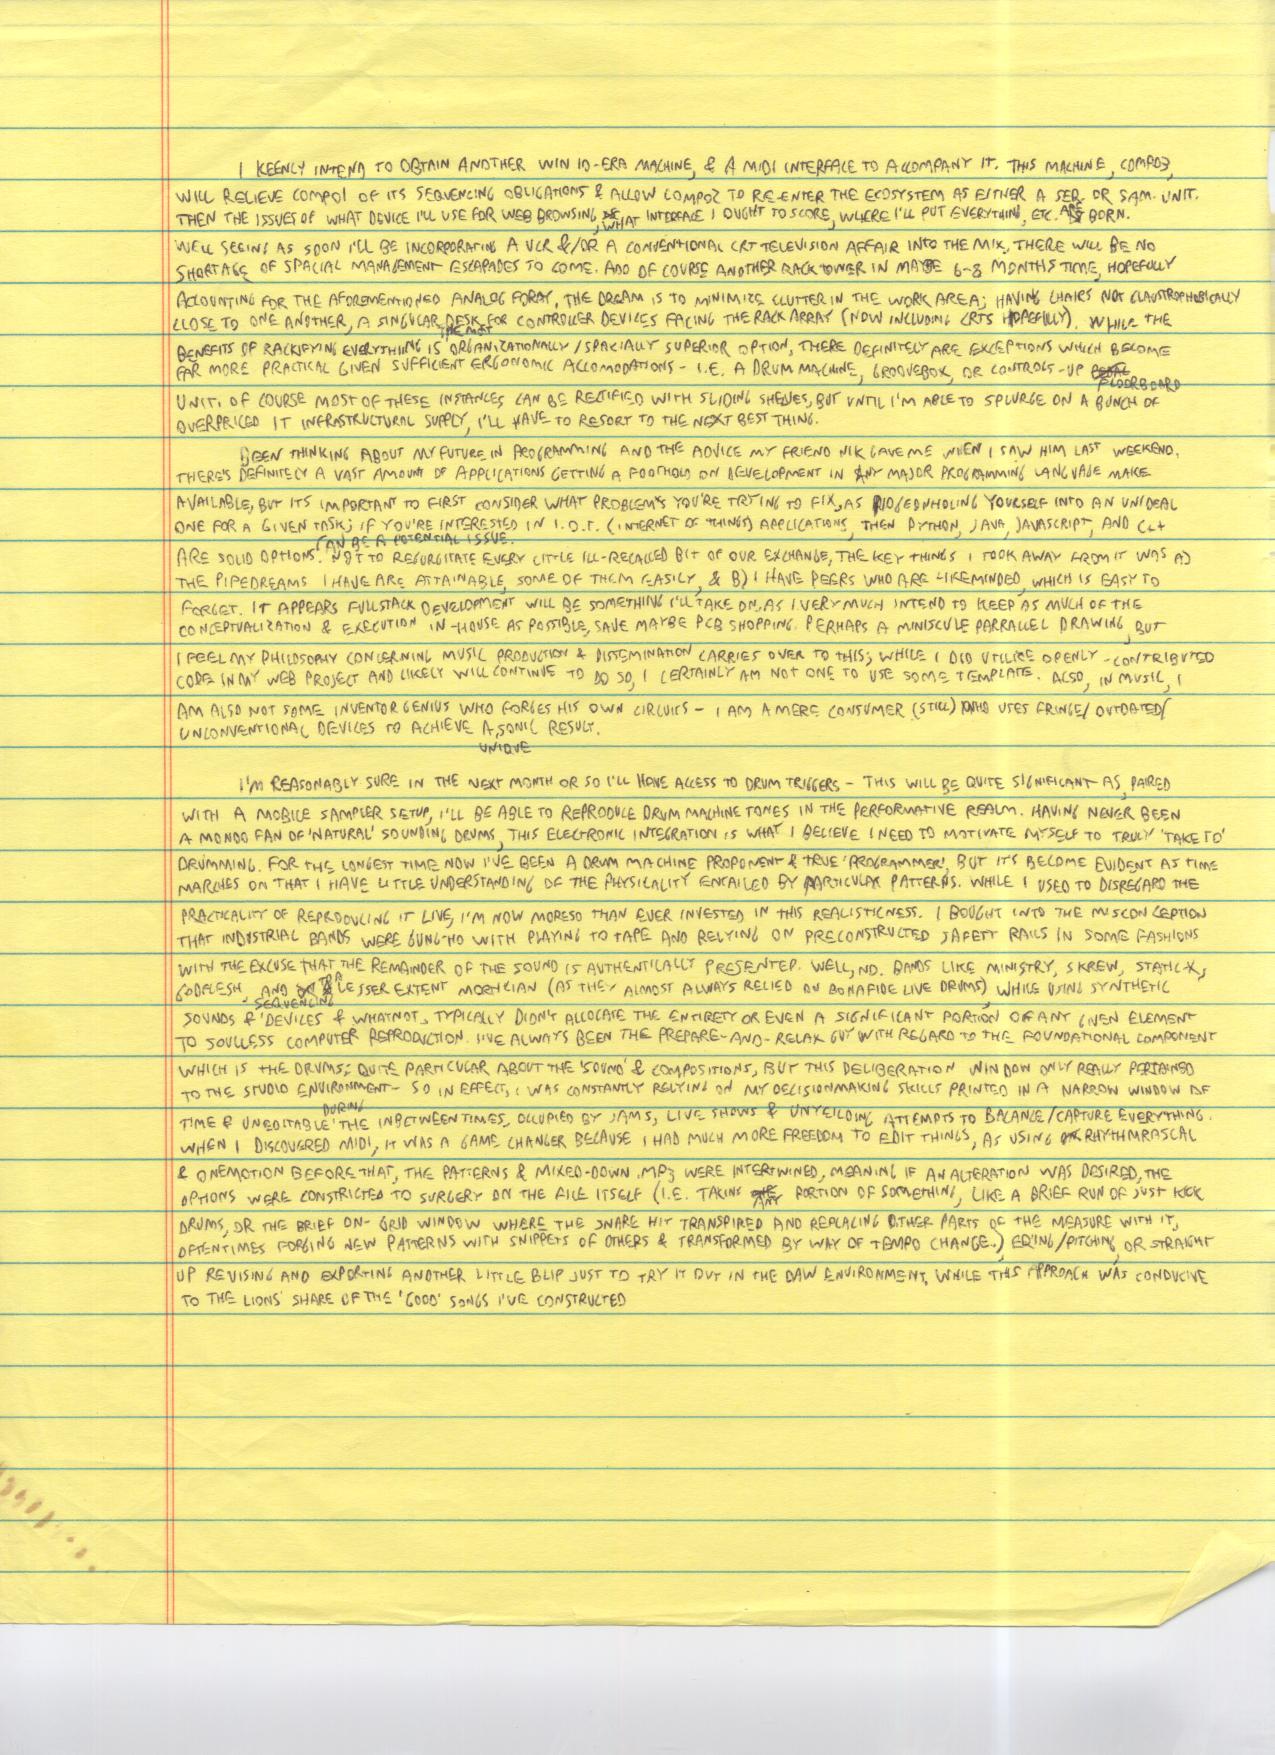 I KEENLY INTEND TO OBTAIN ANOTHER WIN 10-ERA MACHINE, & A MIDI INTERFACE TO ACCOMPANY IT. THIS MACHINE, COMP03,
WILL RELIEVE COMP01 OF ITS SEQUENCING OBLIGATIONS & ALLOW COMP02 TO RE-ENTER THE ECOSYSTEM AS EITHER A SEQ. OR SAM. UNIT.
THEN THE ISSUES OF WHAT DEVICE I'LL USE FOR WEB BROWSING, WHAT INTERFACE I OUGHT TO SCORE, WHERE I'LL PUT EVERYTHING, ETC. ARE BORN.
WELL SEEING AS SOON I'LL BE INCORPORATING A VCR &/OR A CONVENTIONAL CRT TELEVISION AFFAIR INTO THE MIX, THERE WILL BE NO
SHORTAGE OF SPACIAL MANAGEMENT ESCAPADES TO COME. AND OF COURSE ANOTHER RACK TOWER IN MAYBE 6-8 MONTHS TIME, HOPEFULLY
ACCOUNTING FOR THE AFOREMENTIONED ANALOG FORAY, THE DREAM IS TO MINIMIZE CLUTTER IN THE WORK AREA; HAVING CHAIRS NOT CLAUSTROPHOBICALLY
CLOSE TO ONE ANOTHER, A SINGULAR DESK FOR CONTROLLER DEVICES FACING THE RACK ARRAY (NOW INCLUDING CRTS HOPEFULLY). WHILE THE
BENEFITS OF RACKIFYING EVERYTHING IS THE MOST ORGANIZATIONALLY/SPACIALLY SUPERIOR OPTION, THERE DEFINITELY ARE EXCEPTIONS WHICH BECOME
FAR MORE PRACTICAL GIVEN SUFFICIENT ERGONOMIC ACCOMODATIONS - I.E. A DRUM MACHINE, GROOVEBOX, OR CONTROLS-UP FLOORBOARD
UNIT. OF COURSE MOST OF THESE INSTANCES CAN BE RECTIFIED WITH SLIDING SHELVES, BUT UNTIL I'M ABLE TO SPLURGE ON A BUNCH OF
OVERPRICED IT INFRASTRUCTURAL SUPPLY, I'LL HAVE TO RESORT TO THE NEXT BEST THING.
BEEN THINKING ABOUT MY FUTURE IN PROGRAMMING AND THE ADVICE MY FRIEND NIK GAVE ME WHEN I SAW HIM LAST WEEKEND.
THERE'S DEFINITELY A VAST AMOUNT OF APPLICATIONS GETTING A FOOTHOLD ON DEVELOPMENT IN ANY MAJOR PROGRAMMING LANGUAGE MAKE
AVAILABLE, BUT ITS IMPORTANT TO FIRST CONSIDER WHAT PROBLEMS YOU'RE TRYING TO FIX, AS PIGEONHOLING YOURSELF INTO AN UNIDEAL
ONE FOR A GIVEN TASK CAN BE A POTENTIAL ISSUE. IF YOU'RE INTERESTED IN I.O.T. (INTERNET OF THINGS) APPLICATIONS, THEN PYTHON, JAVA, JAVASCRIPT, AND C++
ARE SOLID OPTIONS. NOT TO REGURGITATE EVERY LITTLE ILL-RECALLED BIT OF OUR EXCHANGE, THE KEY THINGS I TOOK AWAY FROM IT WAS A)
THE PIPEDREAMS I HAVE ARE ATTAINABLE, SOME OF THEM EASILY, & B) I HAVE PEERS WHO ARE LIKEMINDED, WHICH IS EASY TO
FORGET. IT APPEARS FULLSTACK DEVELOPMENT WILL BE SOMETHING I'LL TAKE ON, AS I VERY MUCH INTEND TO KEEP AS MUCH OF THE
CONCEPTUALIZATION & EXECUTION IN-HOUSE AS POSSIBLE, SAVE MAYBE PCB SHOPPING. PERHAPS A MINISCULE PARRALEL DRAWING, BUT
I FEEL MY PHILOSOPHY CONCERNING MUSIC PRODUCTION & DISSEMINATION CARRIES OVER TO THIS; WHILE I DID UTILIZE OPENLY-CONTRIBUTED
CODE IN MY WEB PROJECT AND LIKELY WILL CONTINUE TO DO SO, I CERTAINLY AM NOT ONE TO USE SOME TEMPLATE. ALSO, IN MUSIC, I
AM ALSO NOT SOME INVENTOR GENIUS WHO FORGES HIS OWN CIRCUITS - I AM A MERE CONSUMER (STILL) WHO USES FRINGE/OUTDATED/
UNCONVENTIONAL DEVICES TO ACHIEVE A UNIQUE SONIC RESULT.
I'M REASONABLY SURE IN THE NEXT MONTH OR SO I'LL HAVE ACCESS TO DRUM TRIGGERS - THIS WILL BE QUITE SIGNIFICANT AS, PAIRED
WITH A MOBILE SAMPLER SETUP, I'LL BE ABLE TO REPRODUCE DRUM MACHINE TONES IN THE PERFORMATIVE REALM. HAVING NEVER BEEN
A MONDO FAN OF 'NATURAL' SOUNDING DRUMS, THIS ELECTRONIC INTEGRATION IS WHAT I BELIEVE I NEED TO MOTIVATE MYSELF TO TRULY 'TAKE TO'
DRUMMING. FOR THE LONGEST TIME NOW I'VE BEEN A DRUM MACHINE PROPONENT & TRUE 'PROGRAMMER', BUT IT'S BECOME EVIDENT AS TIME
MARCHES ON THAT I HAVE LITTLE UNDERSTANDING OF THE PHYSICALITY ENTAILED BY PARTICULAR PATTERNS. WHILE I USED TO DISREGARD THE
PRACTICALITY OF REPRODUCING IT LIVE, I'M NOW MORESO THAN EVER INVESTED IN THIS REALISTICNESS. I BOUGHT INTO THE MISCONCEPTION
THAT INDUSTRIAL BANDS WERE GUNG-HO WITH PLAYING TO TAPE AND RELYING ON PRECONSTRUCTED SAFETY RAILS IN SOME FASHIONS
WITH THE EXCUSE THAT THE REMAINDER OF THE SOUND IS AUTHENTICALLY PRESENTED. WELL, NO. BANDS LIKE MINISTRY, SKREW, STATIC-X,
GODFLESH, AND TO A LESSER EXTENT MORTICIAN (AS THEY ALMOST ALWAYS RELIED ON BONAFIDE LIVE DRUMS) WHILE USING SYNTHETIC
SOUNDS & SEQUENCING DEVICES & WHATNOT, TYPICALLY DIDN'T ALLOCATE THE ENTIRETY OR EVEN A SIGNIFICANT PORTION OF ANY GIVEN ELEMENT
TO SOULLESS COMPUTER REPRODUCTION. I'VE ALWAYS BEEN THE PREPARE-AND-RELAX GUY WITH REGARD TO THE FOUNDATIONAL COMPONENT
WHICH IS THE DRUMS; QUITE PARTICULAR ABOUT THE 'SOUND' & COMPOSITIONS, BUT THIS DELIBERATION WINDOW ONLY REALLY PERTAINED
TO THE STUDIO ENVIRONMENT - SO IN EFFECT, I WAS CONSTANTLY RELYING ON MY DECISIONMAKING SKILLS PRINTED IN A NARROW WINDOW OF
TIME & UNEDITABLE DURING THE INBETWEEN TIMES, OCCUPIED BY JAMS, LIVE SHOWS & UNYEILDING ATTEMPTS TO BALANCE/CAPTURE EVERYTHING.
WHEN I DISCOVERED MIDI, IT WAS A GAME CHANGER BECAUSE I HAD MUCH MORE FREEDOM TO EDIT THINGS, AS USING RHYTHMRASCAL
& ONEMOTION BEFORE THAT, THE PATTERNS & MIXED-DOWN .MP3 WERE INTERTWINED, MEANING IF AN ALTERATION WAS DESIRED, THE
OPTIONS WERE CONSTRICTED TO SURGERY ON THE FILE ITSELF (I.E. TAKING ANY PORTION OF SOMETHING, LIKE A BRIEF RUN OF JUST KICK
DRUMS, OR THE BRIEF ON-GRID WINDOW WHERE THE SNARE HIT TRANSPIRED AND REPLACING OTHER PARTS OF THE MEASURE WITH IT,
OFTENTIMES FORGING NEW PATTERNS WITH SNIPPETS OF OTHERS & TRANSFORMED BY WAY OF TEMPO CHANGE..) EQ'ING/PITCHING, OR STRAIGHT
UP REVISING AND EXPORTING ANOTHER LITTLE BLIP JUST TO TRY IT OUT IN THE DAW ENVIRONMENT, WHILE THIS APPROACH WAS CONDUCIVE
TO THE LIONS' SHARE OF THE 'GOOD' SONGS I'VE CONSTRUCTED